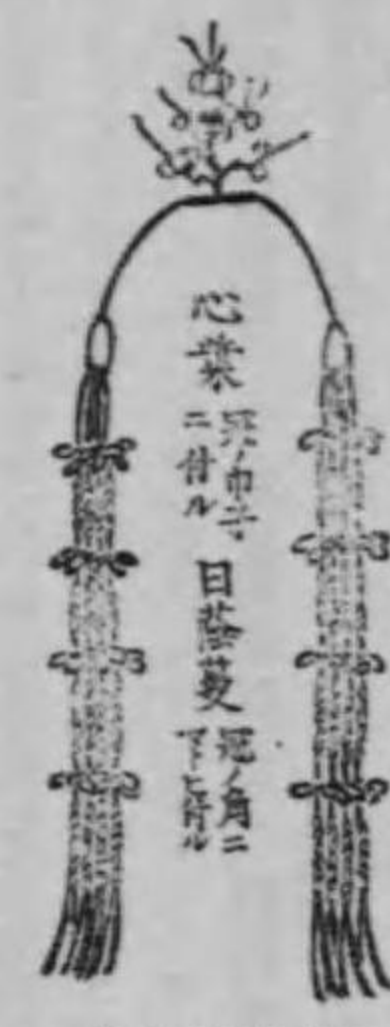 心葉
冠ノ巾子
ニ付ル
日蔭蔓
冠ノ角ニ
下ヒ付ル